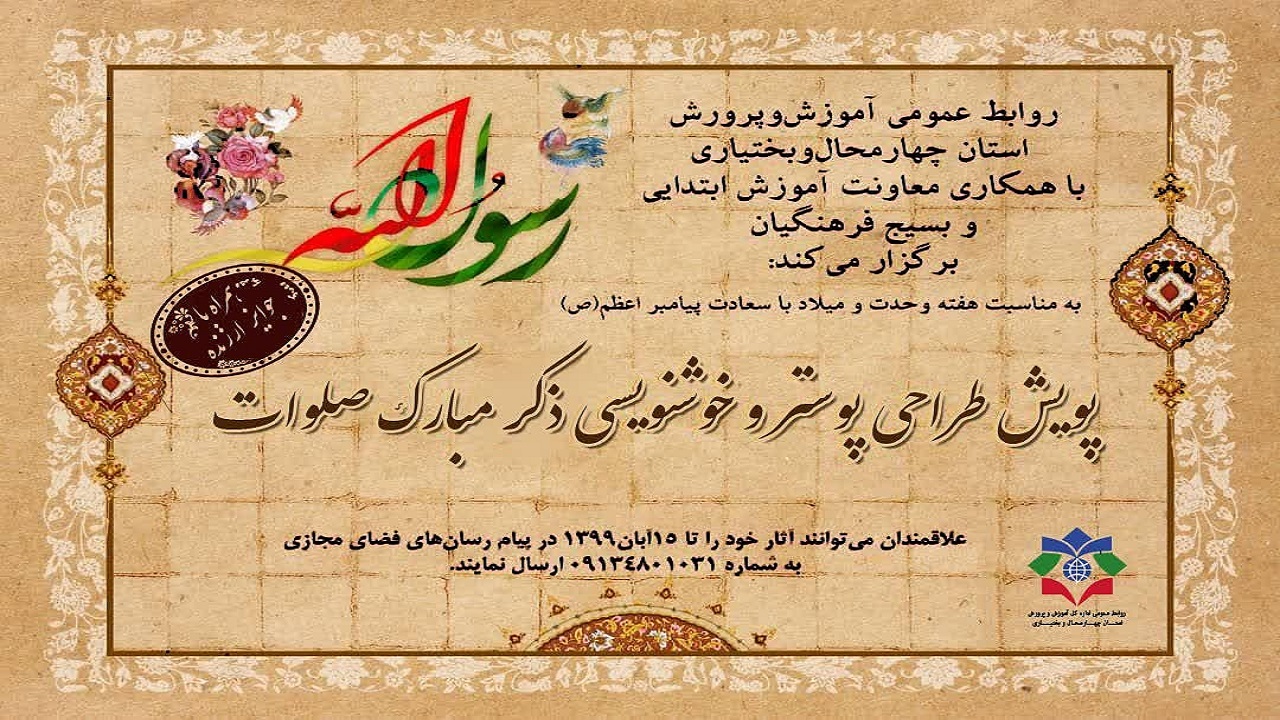 روابط عمومی آموزش‌وپرورش
استان چهارمحال‌وبختیاری
با همکاری معاونت آموزش ابتدایی
و بسیج فرهنگیان
برگزار می‌کند:
رسول الله
به مناسبت هفته وحدت و میلاد با سعادت پیامبر اعظم(ص)
همراه با
جوایز ارزنده
پویش طراحی پوستر و خوشنویسی ذکر مبارک صلوات
علاقمندان می‌توانند آثار خود را تا ۱۵آبان۱۳۹۹ در پیام رسان‌های فضای مجازی
به شماره ۰۹۱۳۴۸۰۱۰۳۱ ارسال نمایند.
روابط عمومی اداره کل آموزش و پرورش
استان چهارمحال و بختیاری